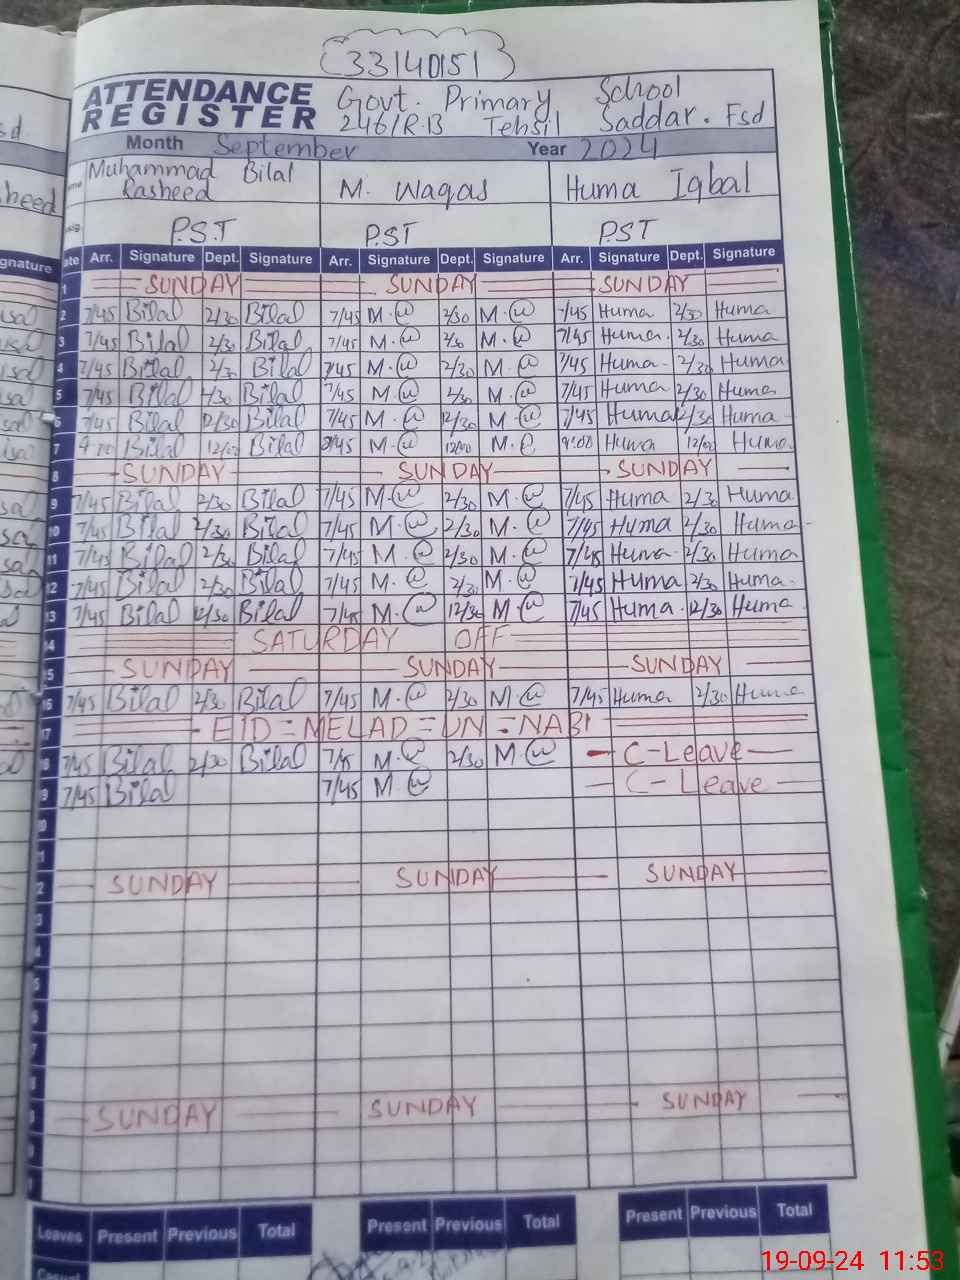 33140151
ATTENDANCE REGISTER
Govt. Primary School
246/R.B Tehsil Saddar. Fsd
Month September Year 2024
Muhammad Bilal Rasheed M. Waqas Huma Iqbal
P.S.T P.S.T PST
Arr. Signature Dept. Signature Arr. Signature Dept. Signature Arr. Signature Dept. Signature
1 SUNDAY SUNDAY SUNDAY
2 7/45 Bilal 2/30 Bilal 7/45 M.@ 2/30 M.@ 7/45 Huma 2/30 Huma
3 7/45 Bilal 2/30 Bilal 7/45 M.@ 2/30 M.@ 7/45 Huma 2/30 Huma
4 7/45 Bilal 2/30 Bilal 7/45 M.@ 2/30 M.@ 7/45 Huma 2/30 Huma
5 7/45 Bilal 2/30 Bilal 7/45 M.@ 2/30 M.@ 7/45 Huma 2/30 Huma
6 7/45 Bilal 12/30 Bilal 7/45 M.@ 12/30 M.@ 7/45 Huma 12/30 Huma
7 Bilal Bilal M.@ 12/00 M.@ 9:00 Huma 12/00 Huma
8 SUNDAY SUNDAY SUNDAY
9 7/45 Bilal 2/30 Bilal 7/45 M.@ 2/30 M.@ 7/45 Huma 2/30 Huma
10 7/45 Bilal 2/30 Bilal 7/45 M.@ 2/30 M.@ 7/45 Huma 2/30 Huma
11 7/45 Bilal 2/30 Bilal 7/45 M.@ 2/30 M.@ 7/45 Huma 2/30 Huma
12 7/45 Bilal 2/30 Bilal 7/45 M.@ 2/30 M.@ 7/45 Huma 2/30 Huma
13 7/45 Bilal 12/30 Bilal 7/45 M.@ 12/30 M.@ 7/45 Huma 12/30 Huma
14 SATURDAY OFF
15 SUNDAY SUNDAY SUNDAY
16 7/45 Bilal 2/30 Bilal 7/45 M.@ 2/30 M.@ 7/45 Huma 2/30 Huma
17 EID = MELAD = UN = NABI
8 7/45 Bilal 2/30 Bilal 7/45 M.@ 2/30 M.@ C-Leave
9 7/45 Bilal 7/45 M.@ C-Leave
0
1
2 SUNDAY SUNDAY SUNDAY
3
4
5
6
7
SUNDAY SUNDAY SUNDAY
Leaves Present Previous Total Present Previous Total Present Previous Total
19-09-24 11:53